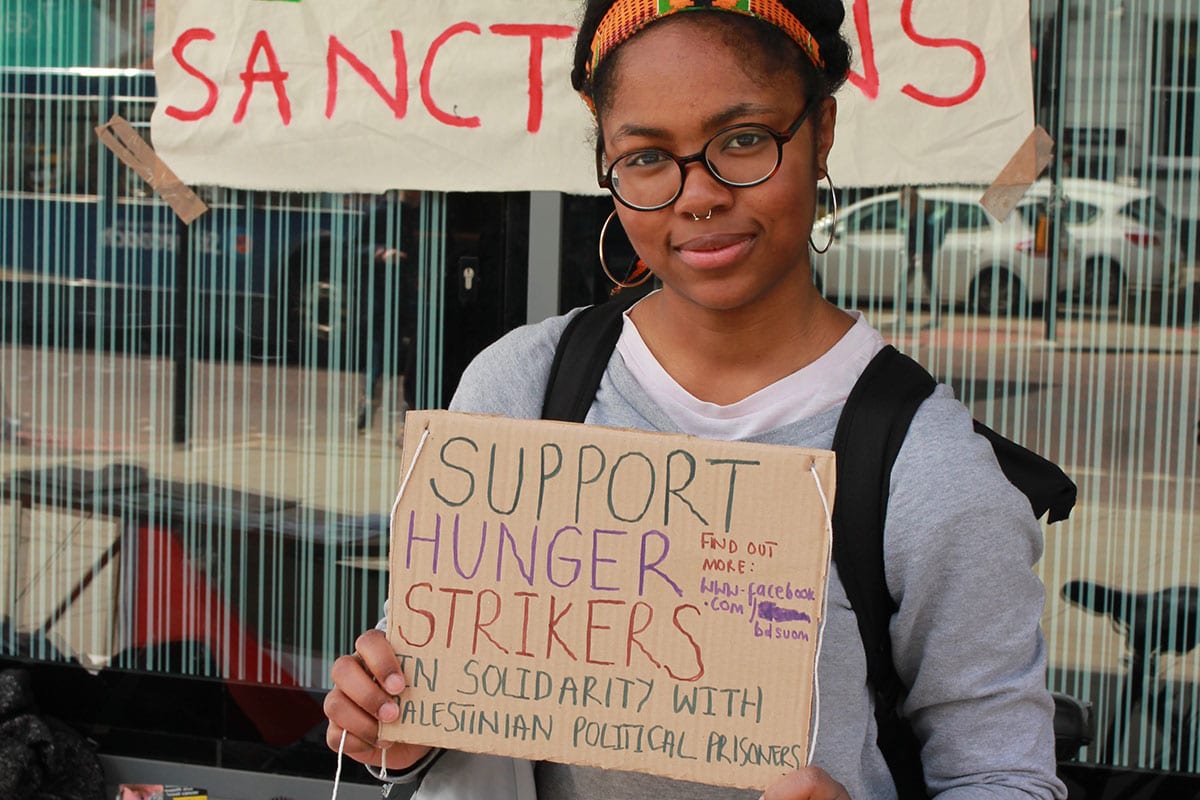 SANCT NS
SUPPORT
HUNGER
STRIKERS
FIND OUT
MORE:
www.facebook
.com/
bdsuom
IN SOLIDARITY WITH
PALESTINIAN POLITICAL PRISONERS